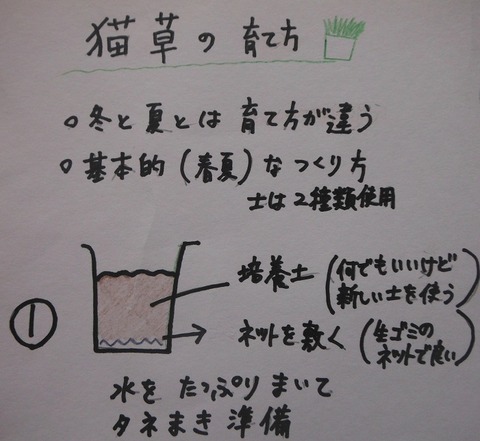 猫草の育て方
○冬と夏とは育て方が違う
○基本的(春夏)なつくり方
土は2種類使用
①
培養土(何でもいいけど
新しい土を使う)
ネットを敷く(生ゴミの
ネットで良い)
水をたっぷりまいて
タネまき準備